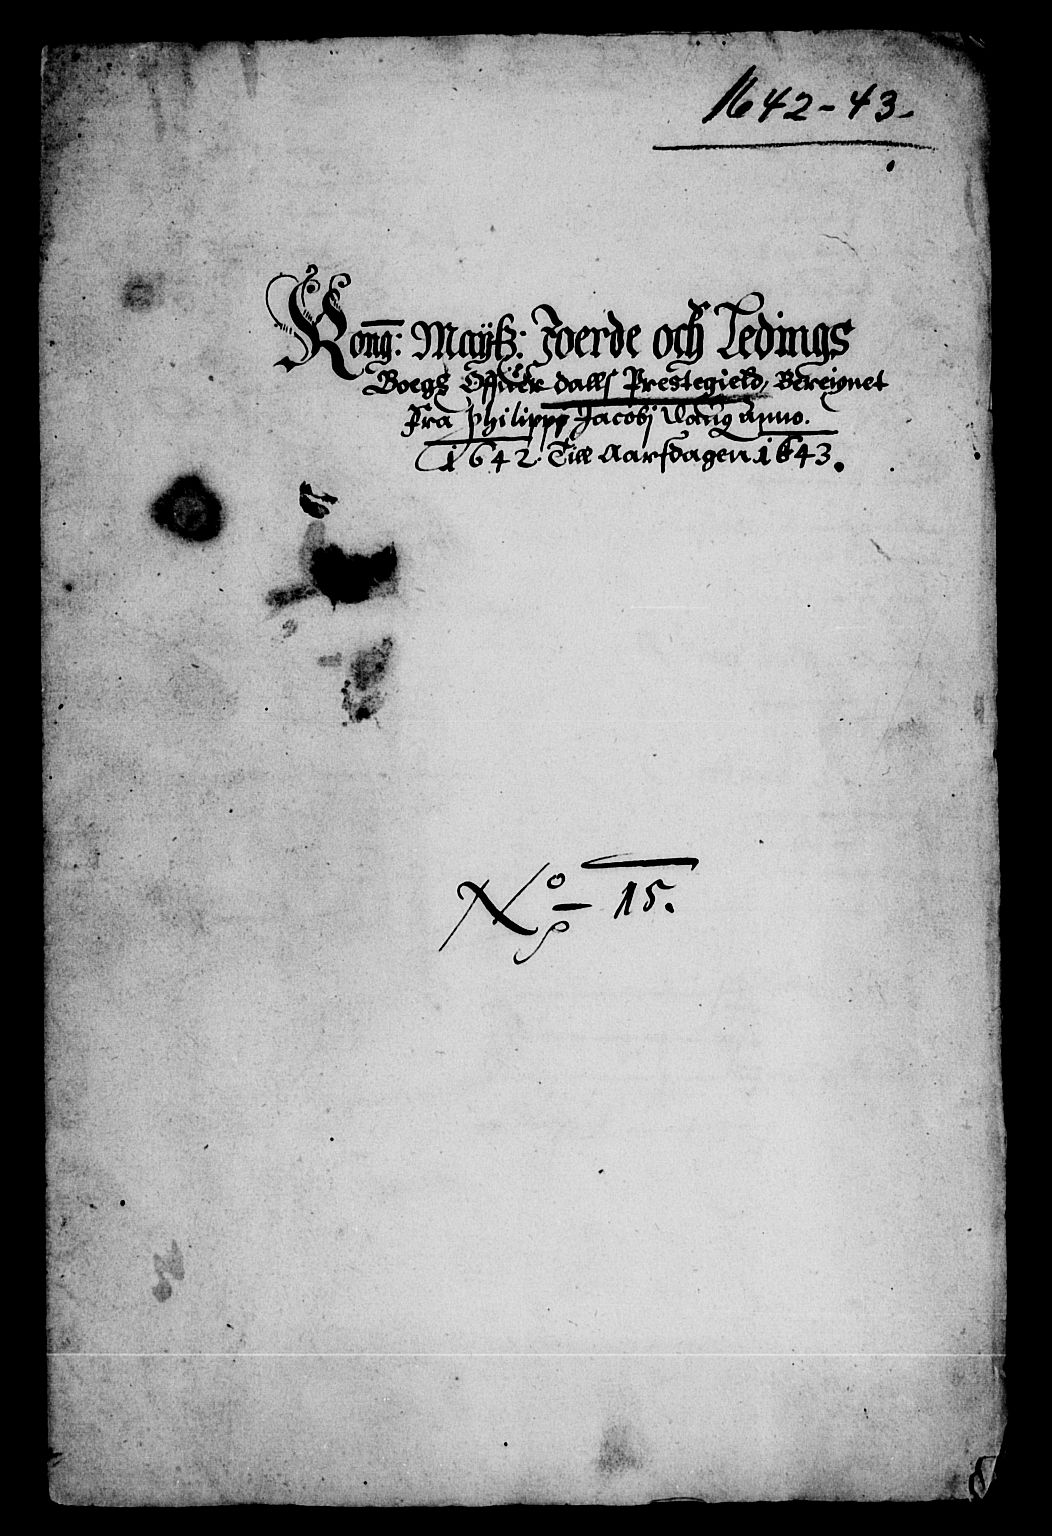 1642-43.
Kong: Mayßt: Joerde och Ledings
Boegs Offver dalls Prestegield, Bereignet
Fra Philippi Jacobj anno.
1642. Till Aarsdagen 1643.
No 15.
8